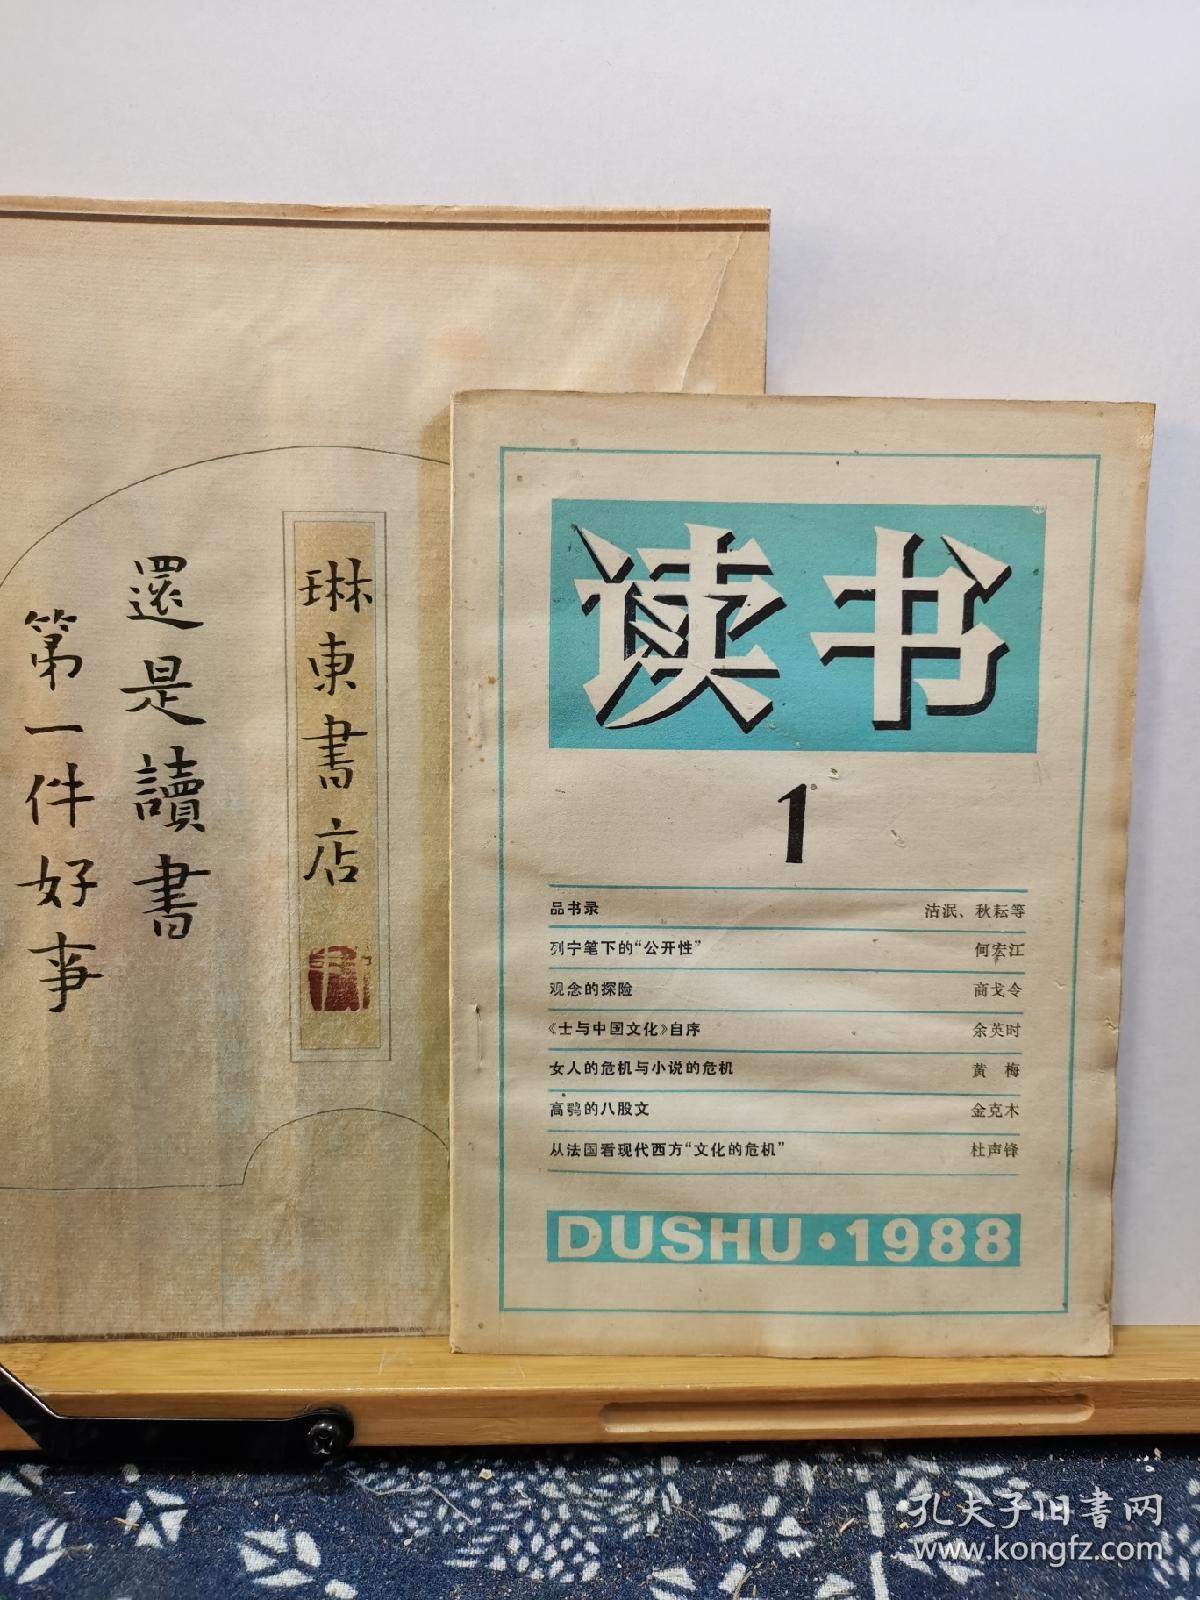 琳東書店
還是讀書
第一件好事
读书
1
品书录 沽泯、秋耘等
列宁笔下的“公开性” 何宏江
观念的探险 商戈令
《士与中国文化》自序 余英时
女人的危机与小说的危机 黄 梅
高鹗的八股文 金克木
从法国看现代西方“文化的危机” 杜声锋
DUSHU·1988
孔夫子旧書网
www.kongfz.com